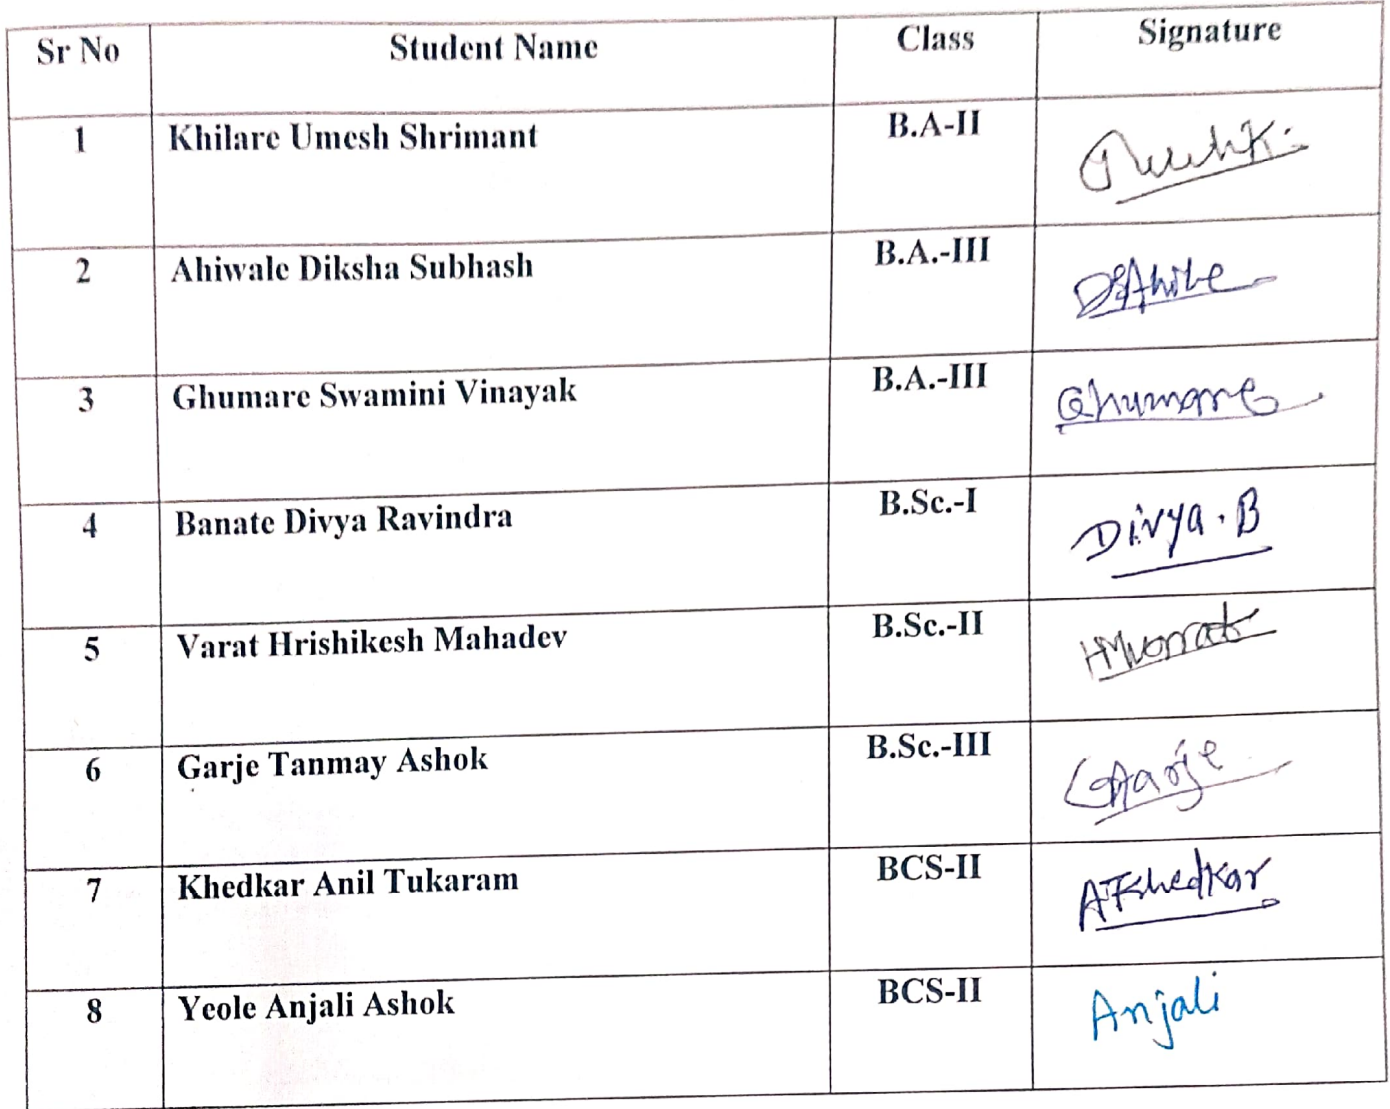 Sr No Student Name Class Signature
1 Khilare Umesh Shrimant B.A-II
2 Ahiwale Diksha Subhash B.A.-III
3 Ghumare Swamini Vinayak B.A.-III Ghumare
4 Banate Divya Ravindra B.Sc.-I Divya.B
5 Varat Hrishikesh Mahadev B.Sc.-II HMvarat
6 Garje Tanmay Ashok B.Sc.-III Garje
7 Khedkar Anil Tukaram BCS-II ATKhedkar
8 Yeole Anjali Ashok BCS-II Anjali